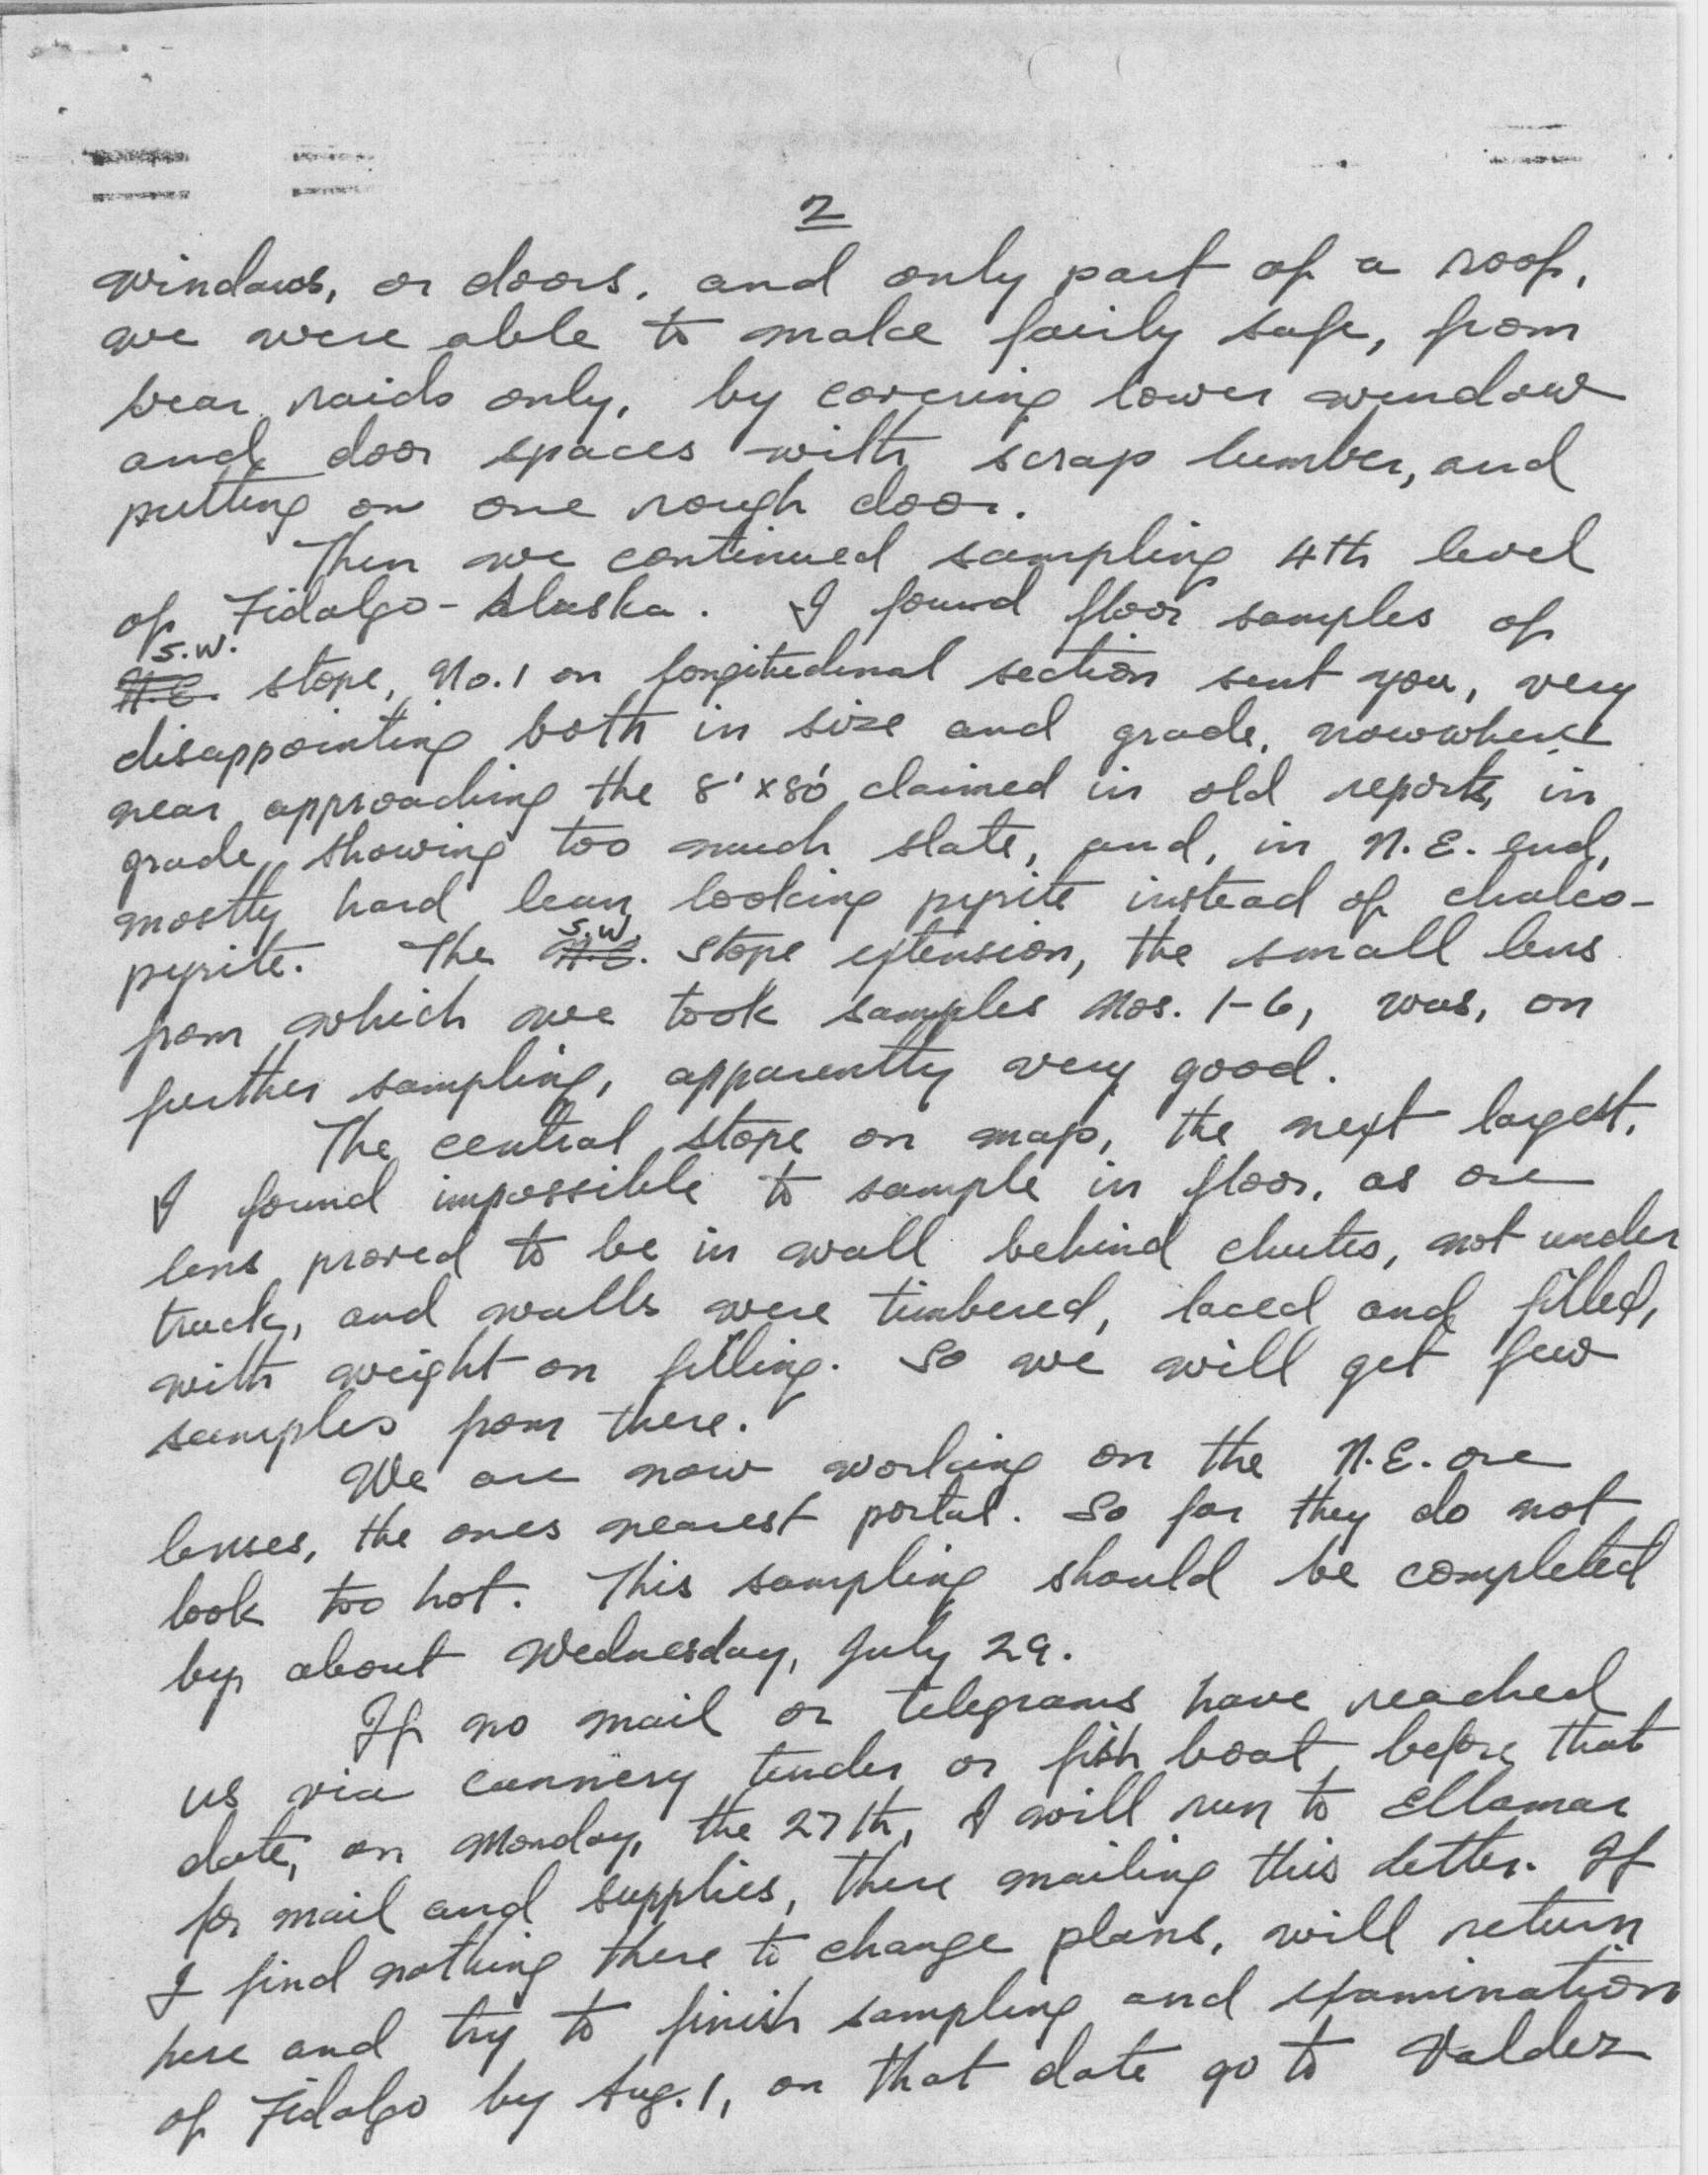 2
windows, or doors, and only part of a roof,
we were able to make fairly safe, from
bear raids only, by covering lower window
and door spaces with scrap lumber, and
putting on one rough door.
Then we continued sampling 4th level
of Fidalgo-Alaska. I found floor samples of
S.W.
N.E. stope, No.1 on longitudinal section sent you, very
disappointing both in size and grade, nowwhere
near approaching the 8'x80' claimed in old reports, in
grade, showing too much slate, and, in N.E. end,
mostly hard lean looking pyrite instead of chalco-
S.W.
pyrite. The N.E. stope extension, the small lens
from which we took samples Nos. 1-6, was, on
further sampling, apparently very good.
The central stope on map, the next largest,
I found impossible to sample in floor, as ore
lens proved to be in wall behind chutes, not under
track, and walls were timbered, laced and filled,
with weight on filling. So we will get few
samples from there.
We are now working on the N.E. ore
lenses, the ones nearest portal. So far they do not
look too hot. This sampling should be completed
by about Wednesday, July 29.
If no mail or telegrams have reached
us via cannery tender or fish boat before that
date, on Monday, the 27th, I will run to Ellamar
for mail and supplies, there mailing this letter. If
I find nothing there to change plans, will return
here and try to finish sampling and examination
of Fidalgo by Aug. 1, on that date go to Valdez